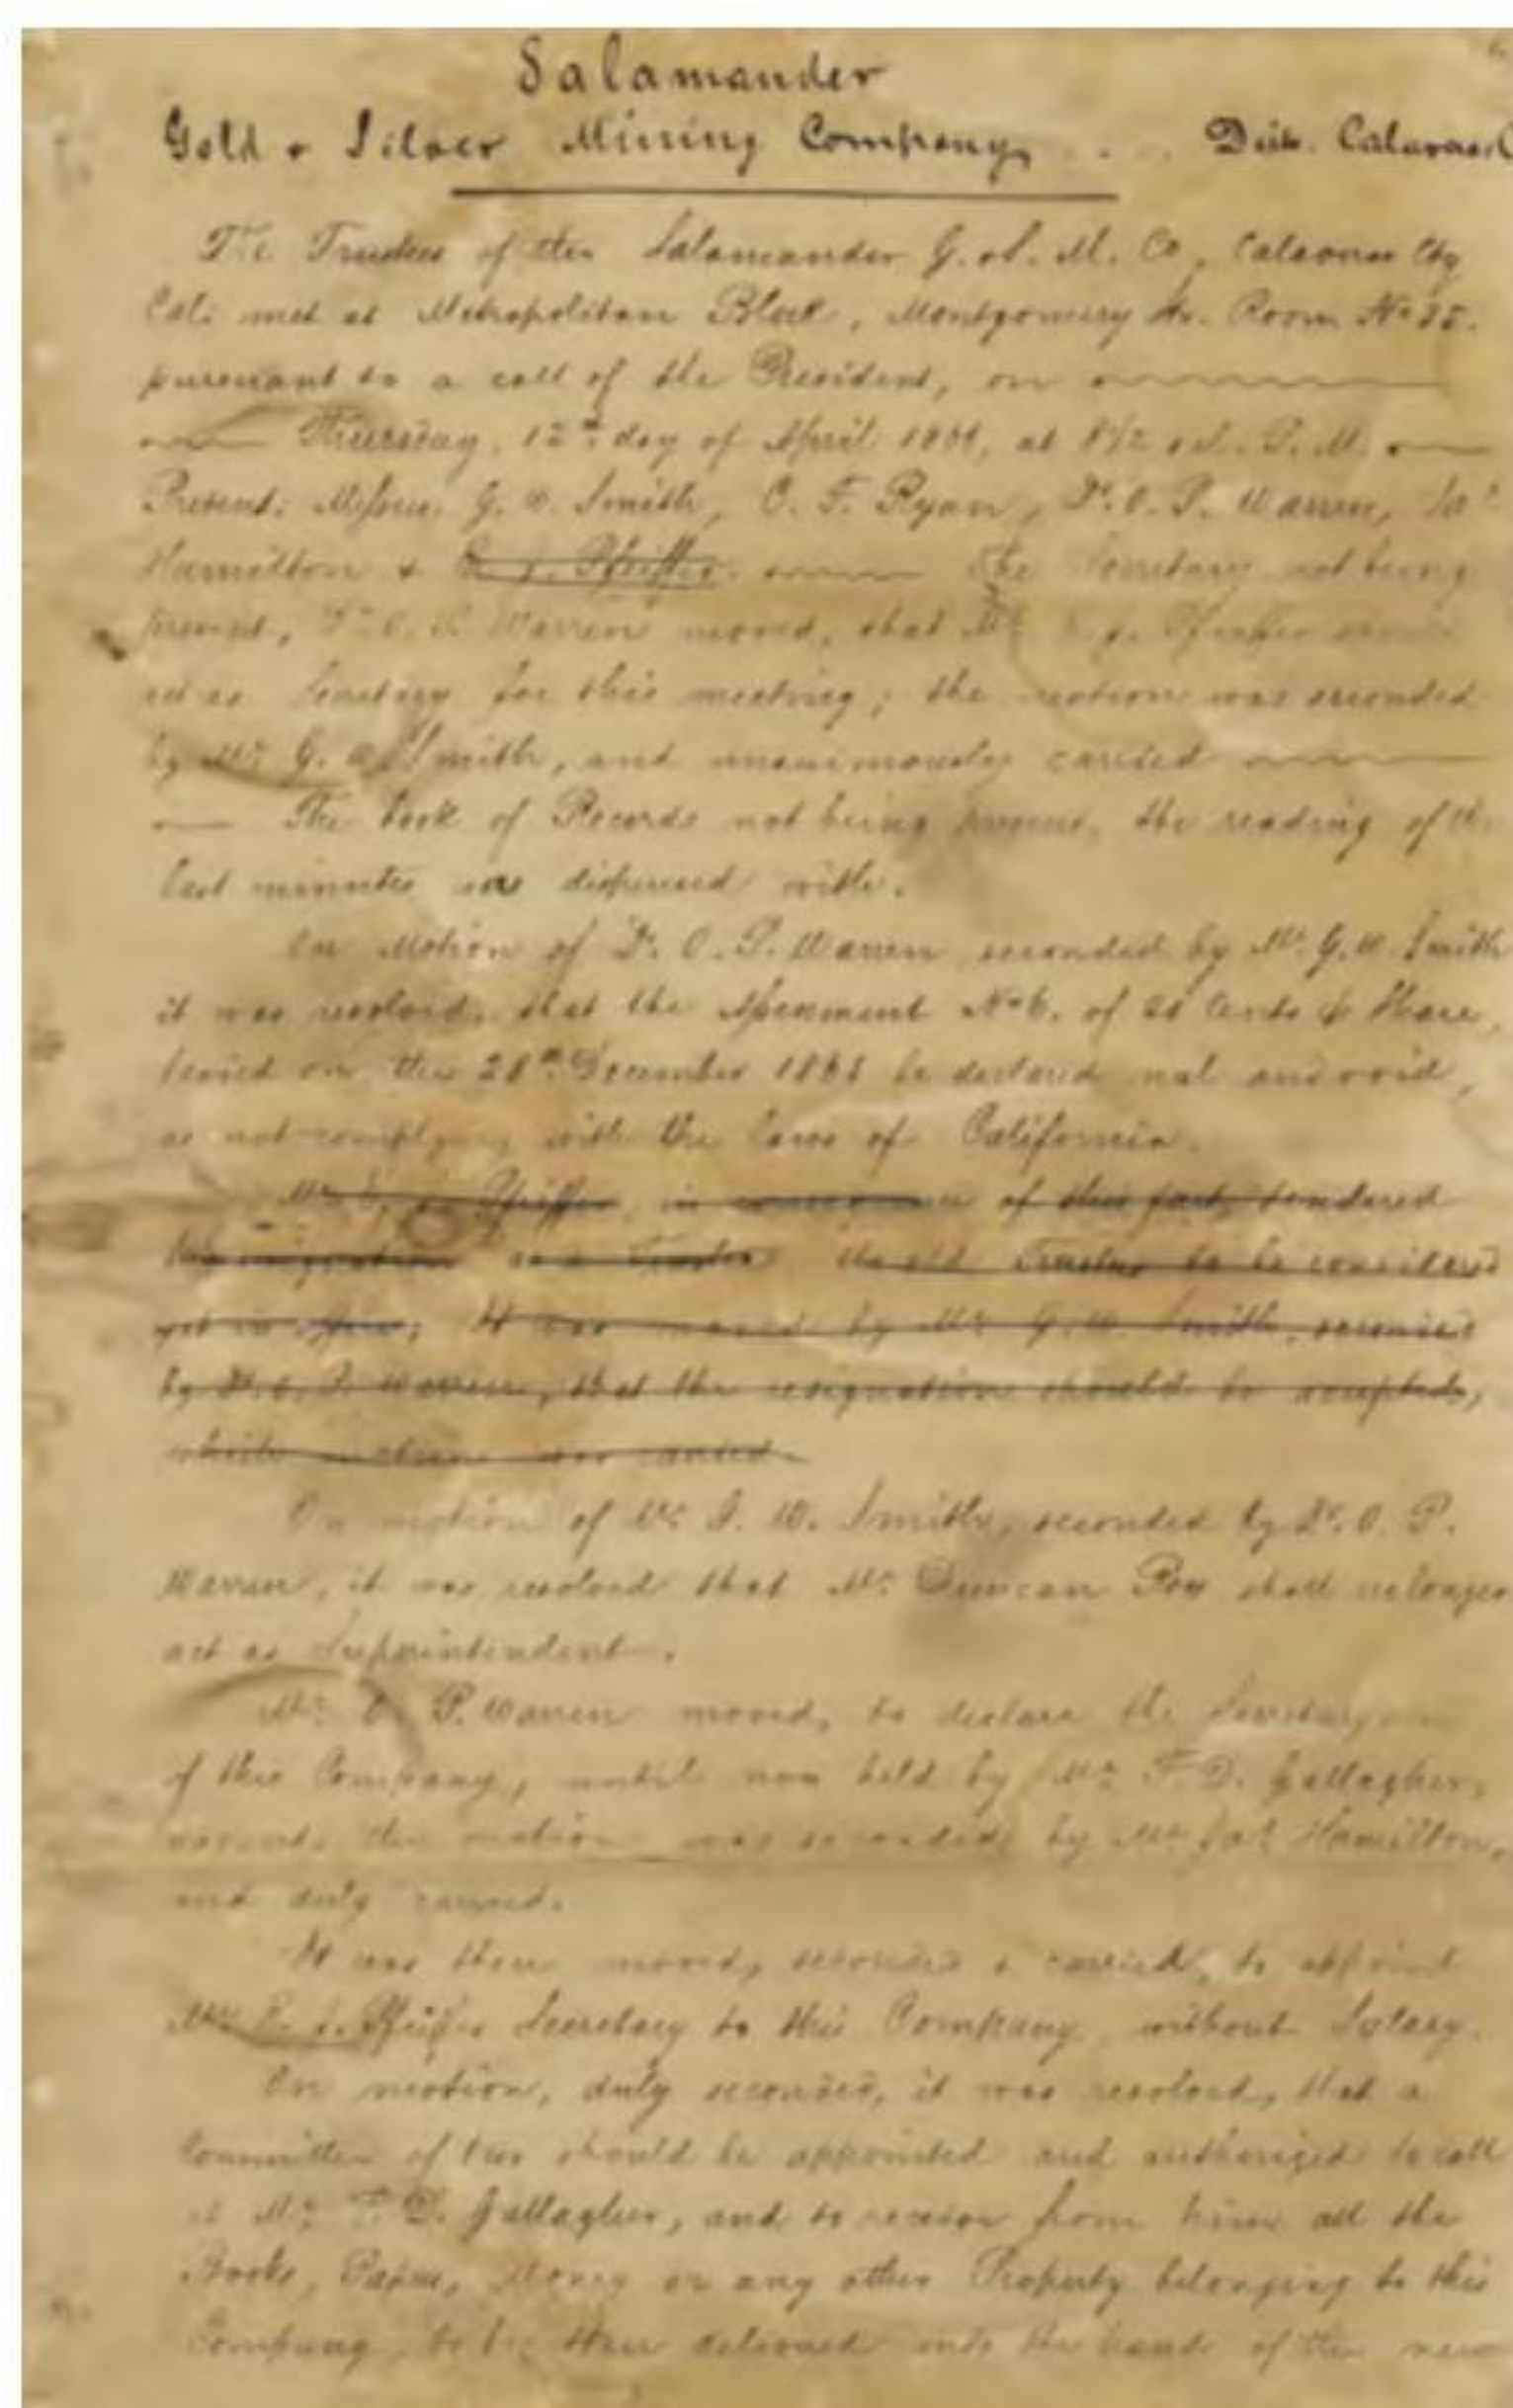 Salamander
Gold & Silver Mining Company Dist. Calaveras
The Trustees of the Salamander G. & S. M. Co, Calaveras Cty
Cal: met at Metropolitan Block, Montgomery Str. Room No
pursuant to a call of the President, on
Thursday, 12th day of April at 8 1/2 ocl. P. M.
Present: Messrs. G. W. Smith, C. F. Ryan, Dr. O. P. Warren, Jas
Hamilton & Pfeiffer. The Secretary not being
present, Dr. O. P. Warren moved, that Mr Pfeiffer
act as Secretary for this meeting; the motion was seconded
by Mr G. W. Smith, and unanimously carried
The book of Records not being present, the reading of the
last minutes was dispensed with.
On Motion of Dr. O. P. Warren seconded by Mr. G. W. Smith
it was resolved, that the Assessment No 6. of Cents p Share,
levied on the 28th December be declared nul and void,
as not complying with the laws of California.
Mr Pfeiffer, in of this fact, tendered
his resignation as a Trustee the old Trustees to be considered
yet in office; It was moved by Mr G. W. Smith, seconded
by Dr. O. P. Warren, that the resignation should be accepted,
which motion was carried.
On motion of Mr G. W. Smith, seconded by Dr. O. P.
Warren, it was resolved that Mr Duncan Roy shall no longer
act as Superintendent.
Mr O. P. Warren moved, to declare the
of this Company, until now held by Mr F. D. Gallagher,
vacant, the motion was seconded by Mr Jas Hamilton,
and duly carried.
It was then moved, seconded & carried, to appoint
Mr Pfeiffer Secretary to this Company, without Salary.
On motion, duly seconded, it was resolved, that a
Committee of two should be appointed and authorized to call
at Mr F. D. Gallagher, and to receive from him all the
Books, Papers, Money or any other Property belonging to this
Company, to be then delivered into the hands of the new